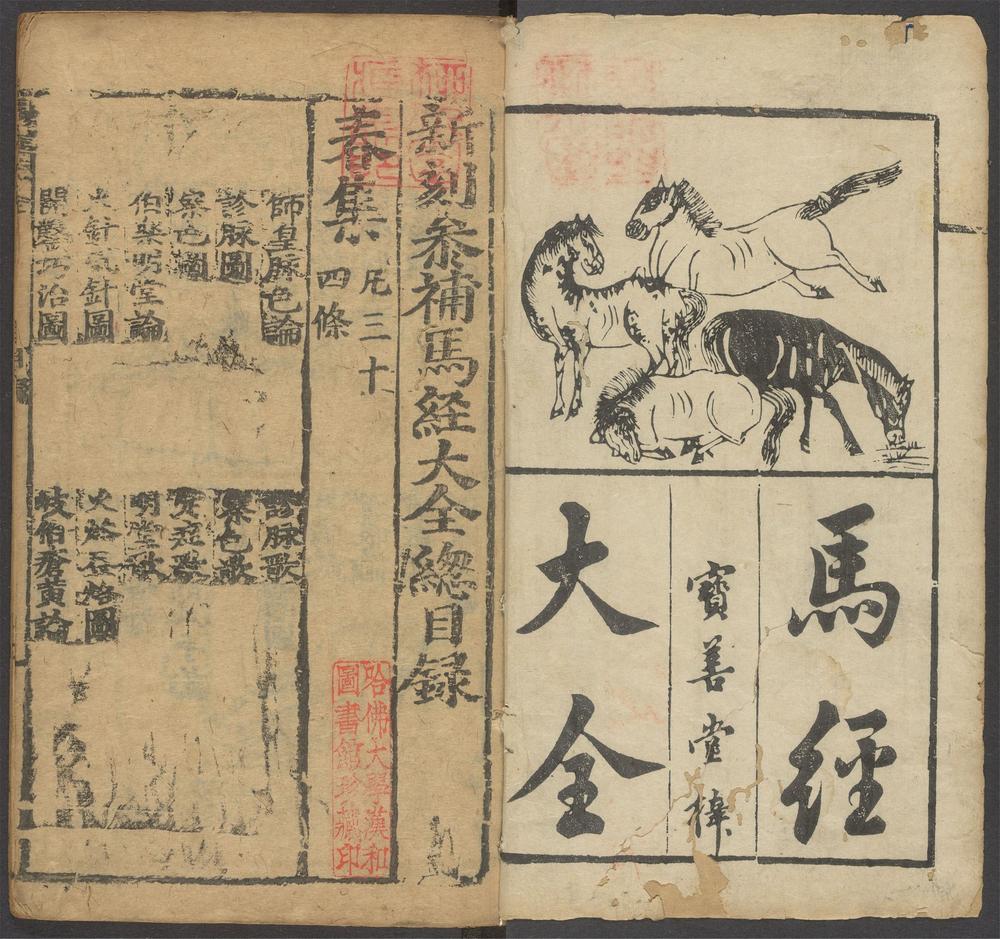 馬經
寶善堂梓
大全
新刻叅補馬経大全緫目録
春集
凡三十
四條
師皇脉色論
診脉圖
察色圖
伯樂明堂論
火針氣針圖
開𨯳巧治圖
診脉歌
察色歌
明堂歌
火烙石烙圖
岐伯瘡黃論
哈佛大學漢和
圖書館珍藏印